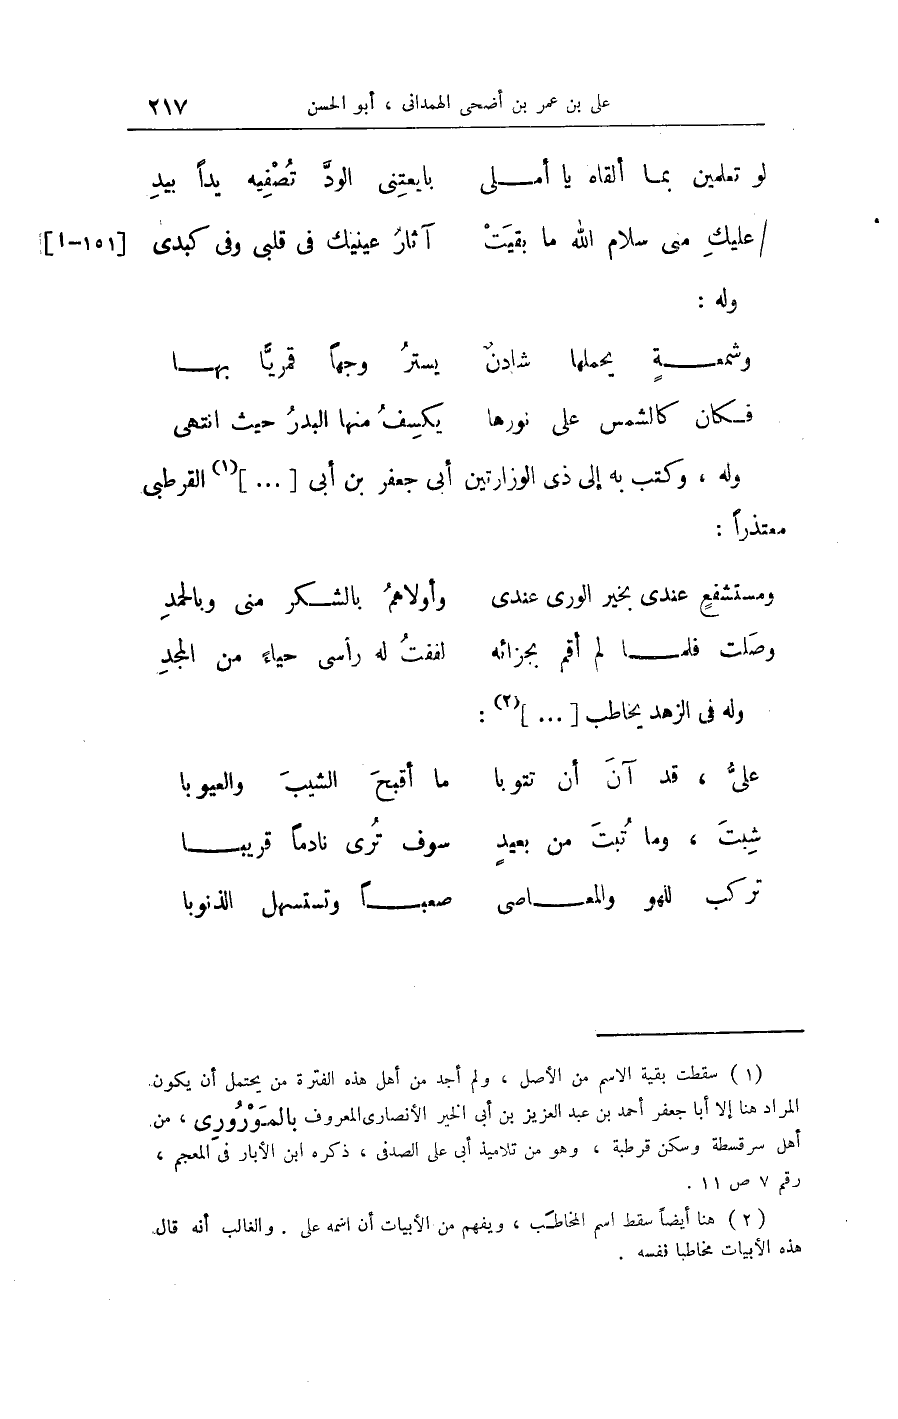 على بن عمر بن أضحى الهمدانى ، أبو الحسن ٢١٧
لو تعلمين بما ألقاه يا أملى بايعتِنى الودَّ تُصْفِيه يداً بيدِ
/ عليكِ منى سلام الله ما بقيَتْ آثارُ عينيك فى قلبى وفى كبدى [١٥١-ا]
وله :
وشمعةٍ يحملها شادنٌ يسترُ وجهاً قمريًّا بها
فكان كالشمس على نورها يكسِفُ منها البدرُ حيث انتهى
وله ، وكتب به إلى ذى الوزارتين أبى جعفر بن أبى [ ... ](١) القرطبى
معتذراً :
ومستشفعٍ عندى بخير الورى عندى وأولاهمُ بالشكر منى وبالحمدِ
وصَلت فلما لم أقم بجزائه لففتُ له رأسى حياءً من المجدِ
وله فى الزهد يخاطب [ ... ](٢) :
علىُّ ، قد آنَ أن تتوبا ما أقبحَ الشيبَ والعيوبا
شِبتَ ، وما تُبتَ من بعيدٍ سوف تُرى نادماً قريبا
تركب للهو والمعاصى صعباً وتستسهل الذنوبا
(١) سقطت بقية الاسم من الأصل ، ولم أجد من أهل هذه الفترة من يحتمل أن يكون
المراد هنا إلا أبا جعفر أحمد بن عبد العزيز بن أبى الخير الأنصارى المعروف بالمَوْرُورِى ، من
أهل سرقسطة وسكن قرطبة ، وهو من تلاميذ أبى على الصدفى ، ذكره ابن الأبار فى المعجم ،
رقم ٧ ص ١١ .
(٢) هنا أيضاً سقط اسم المخاطَب ، ويفهم من الأبيات أن اسمه على . والغالب أنه قال
هذه الأبيات مخاطبا نفسه .